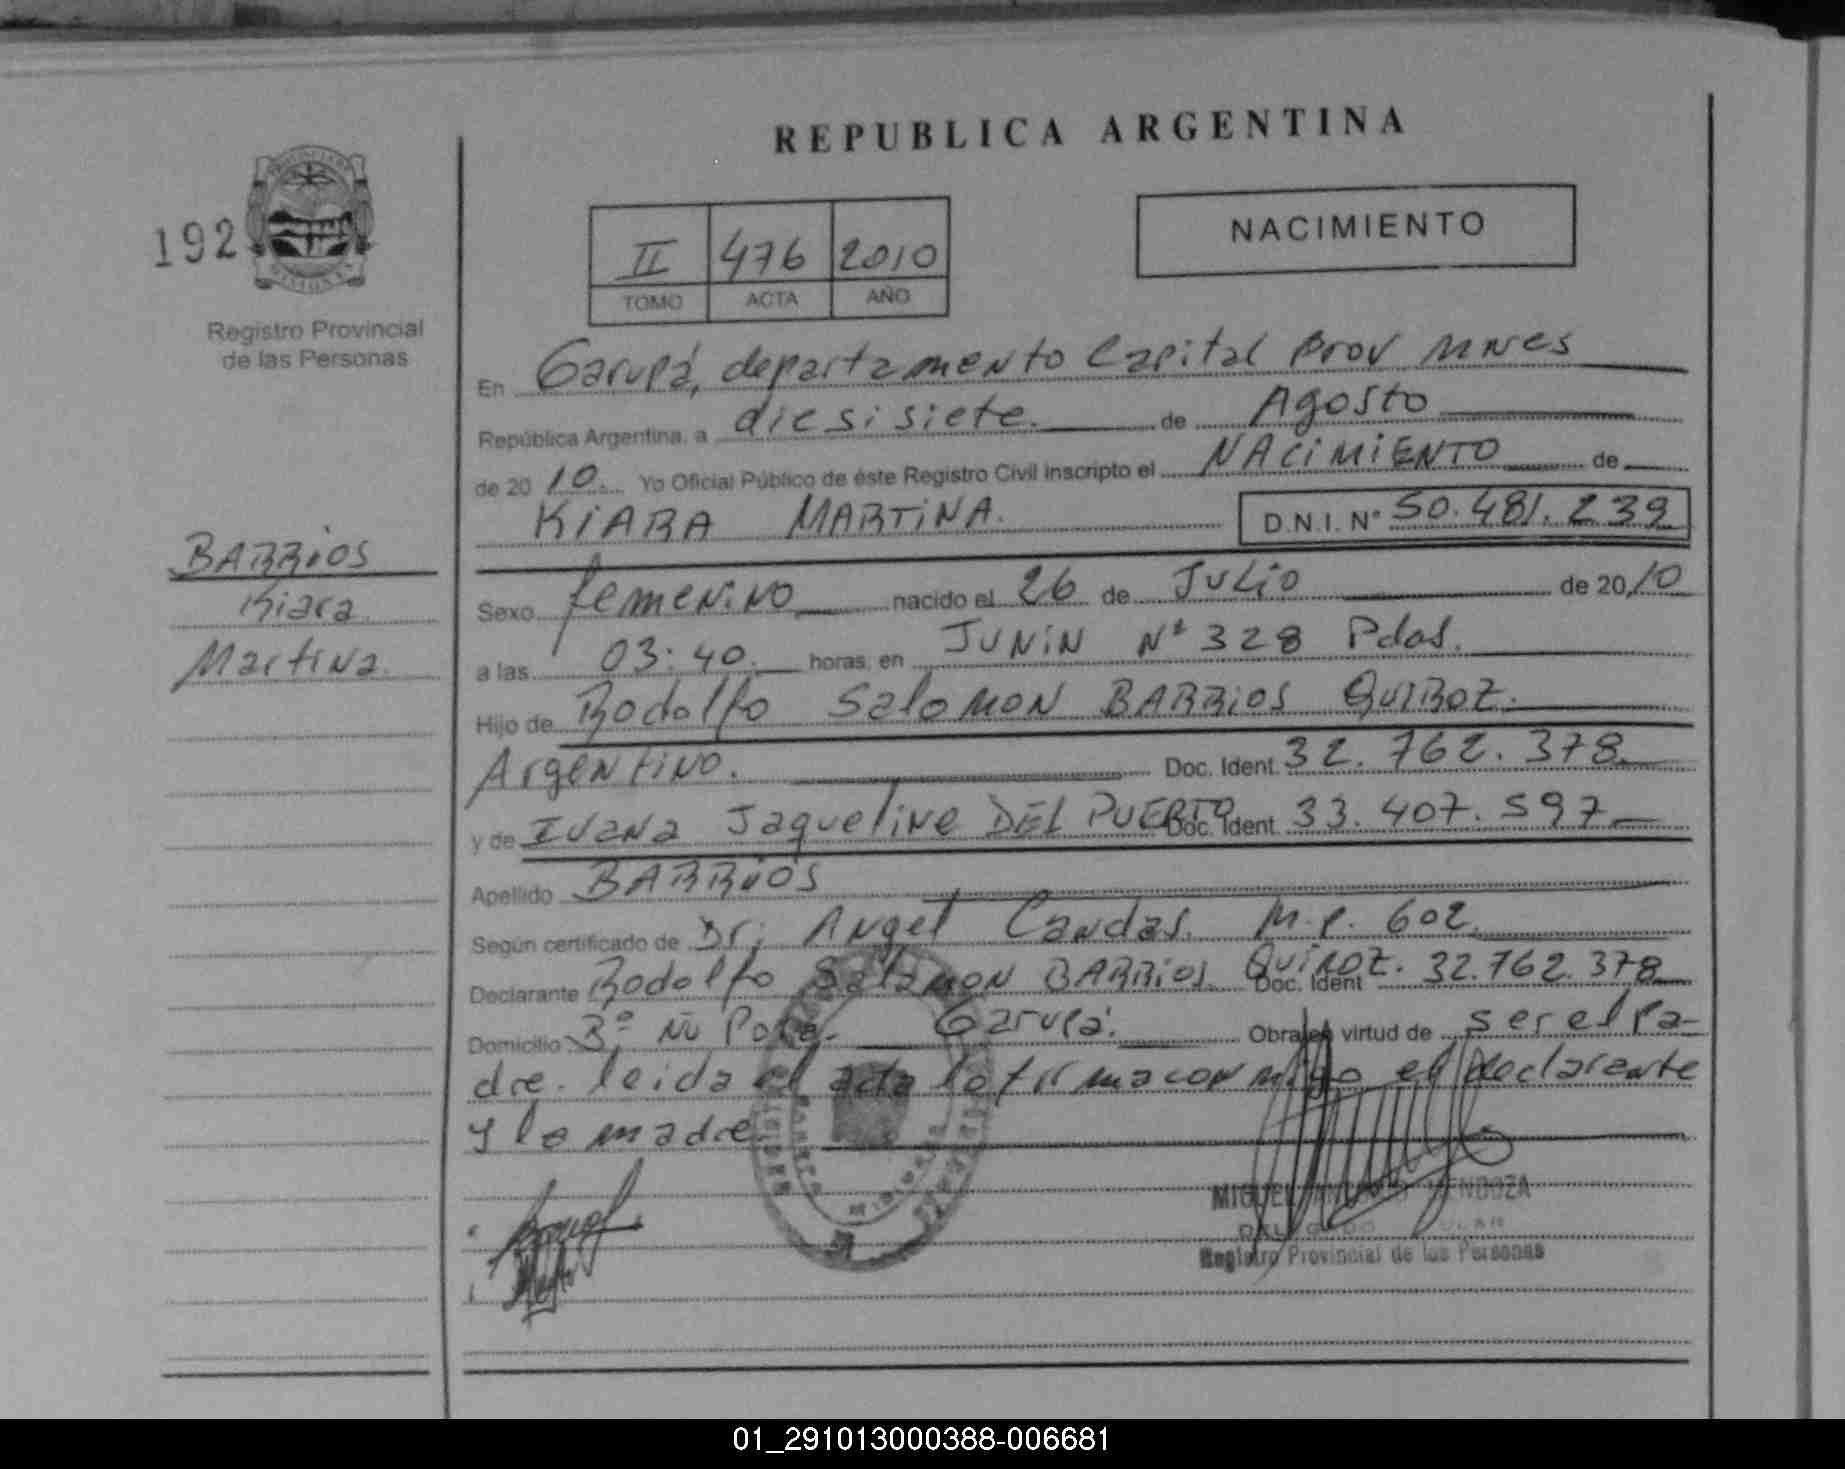 REPUBLICA ARGENTINA
192
Registro Provincial
de las Personas
II 476 2010
TOMO ACTA AÑO
NACIMIENTO
En Garupá, departamento Capital Prov Mnes
República Argentina, a diesisiete. de Agosto
de 20 10. Yo Oficial Público de éste Registro Civil inscripto el NACIMIENTO de
KIARA MARTINA. D.N.I. N° 50.481.239
BARRIOS
Kiara
Martina.
Sexo femenino nacido el 26 de Julio de 20 10
a las 03:40. horas, en JUNIN N° 328 Pdas.
Hijo de Rodolfo Salomon BARRIOS QUIROZ.
Argentino. Doc. Ident. 32.762.378
y de Ivana Jaqueline DEL PUERTO Doc. Ident. 33.407.597
Apellido BARRIOS
Según certificado de Dr; Angel Candas. M.P. 602.
Declarante Rodolfo Salamon BARRIOS QUIROZ. Doc. Ident 32.762.378
Domicilio B° Ñu Pora. Garupá. Obra en virtud de ser el Pa-
dre. leida el acta la firma con migo el declarante
y la madre.
MIGUEL MENDOZA
Registro Provincial de las Personas
01_291013000388-006681